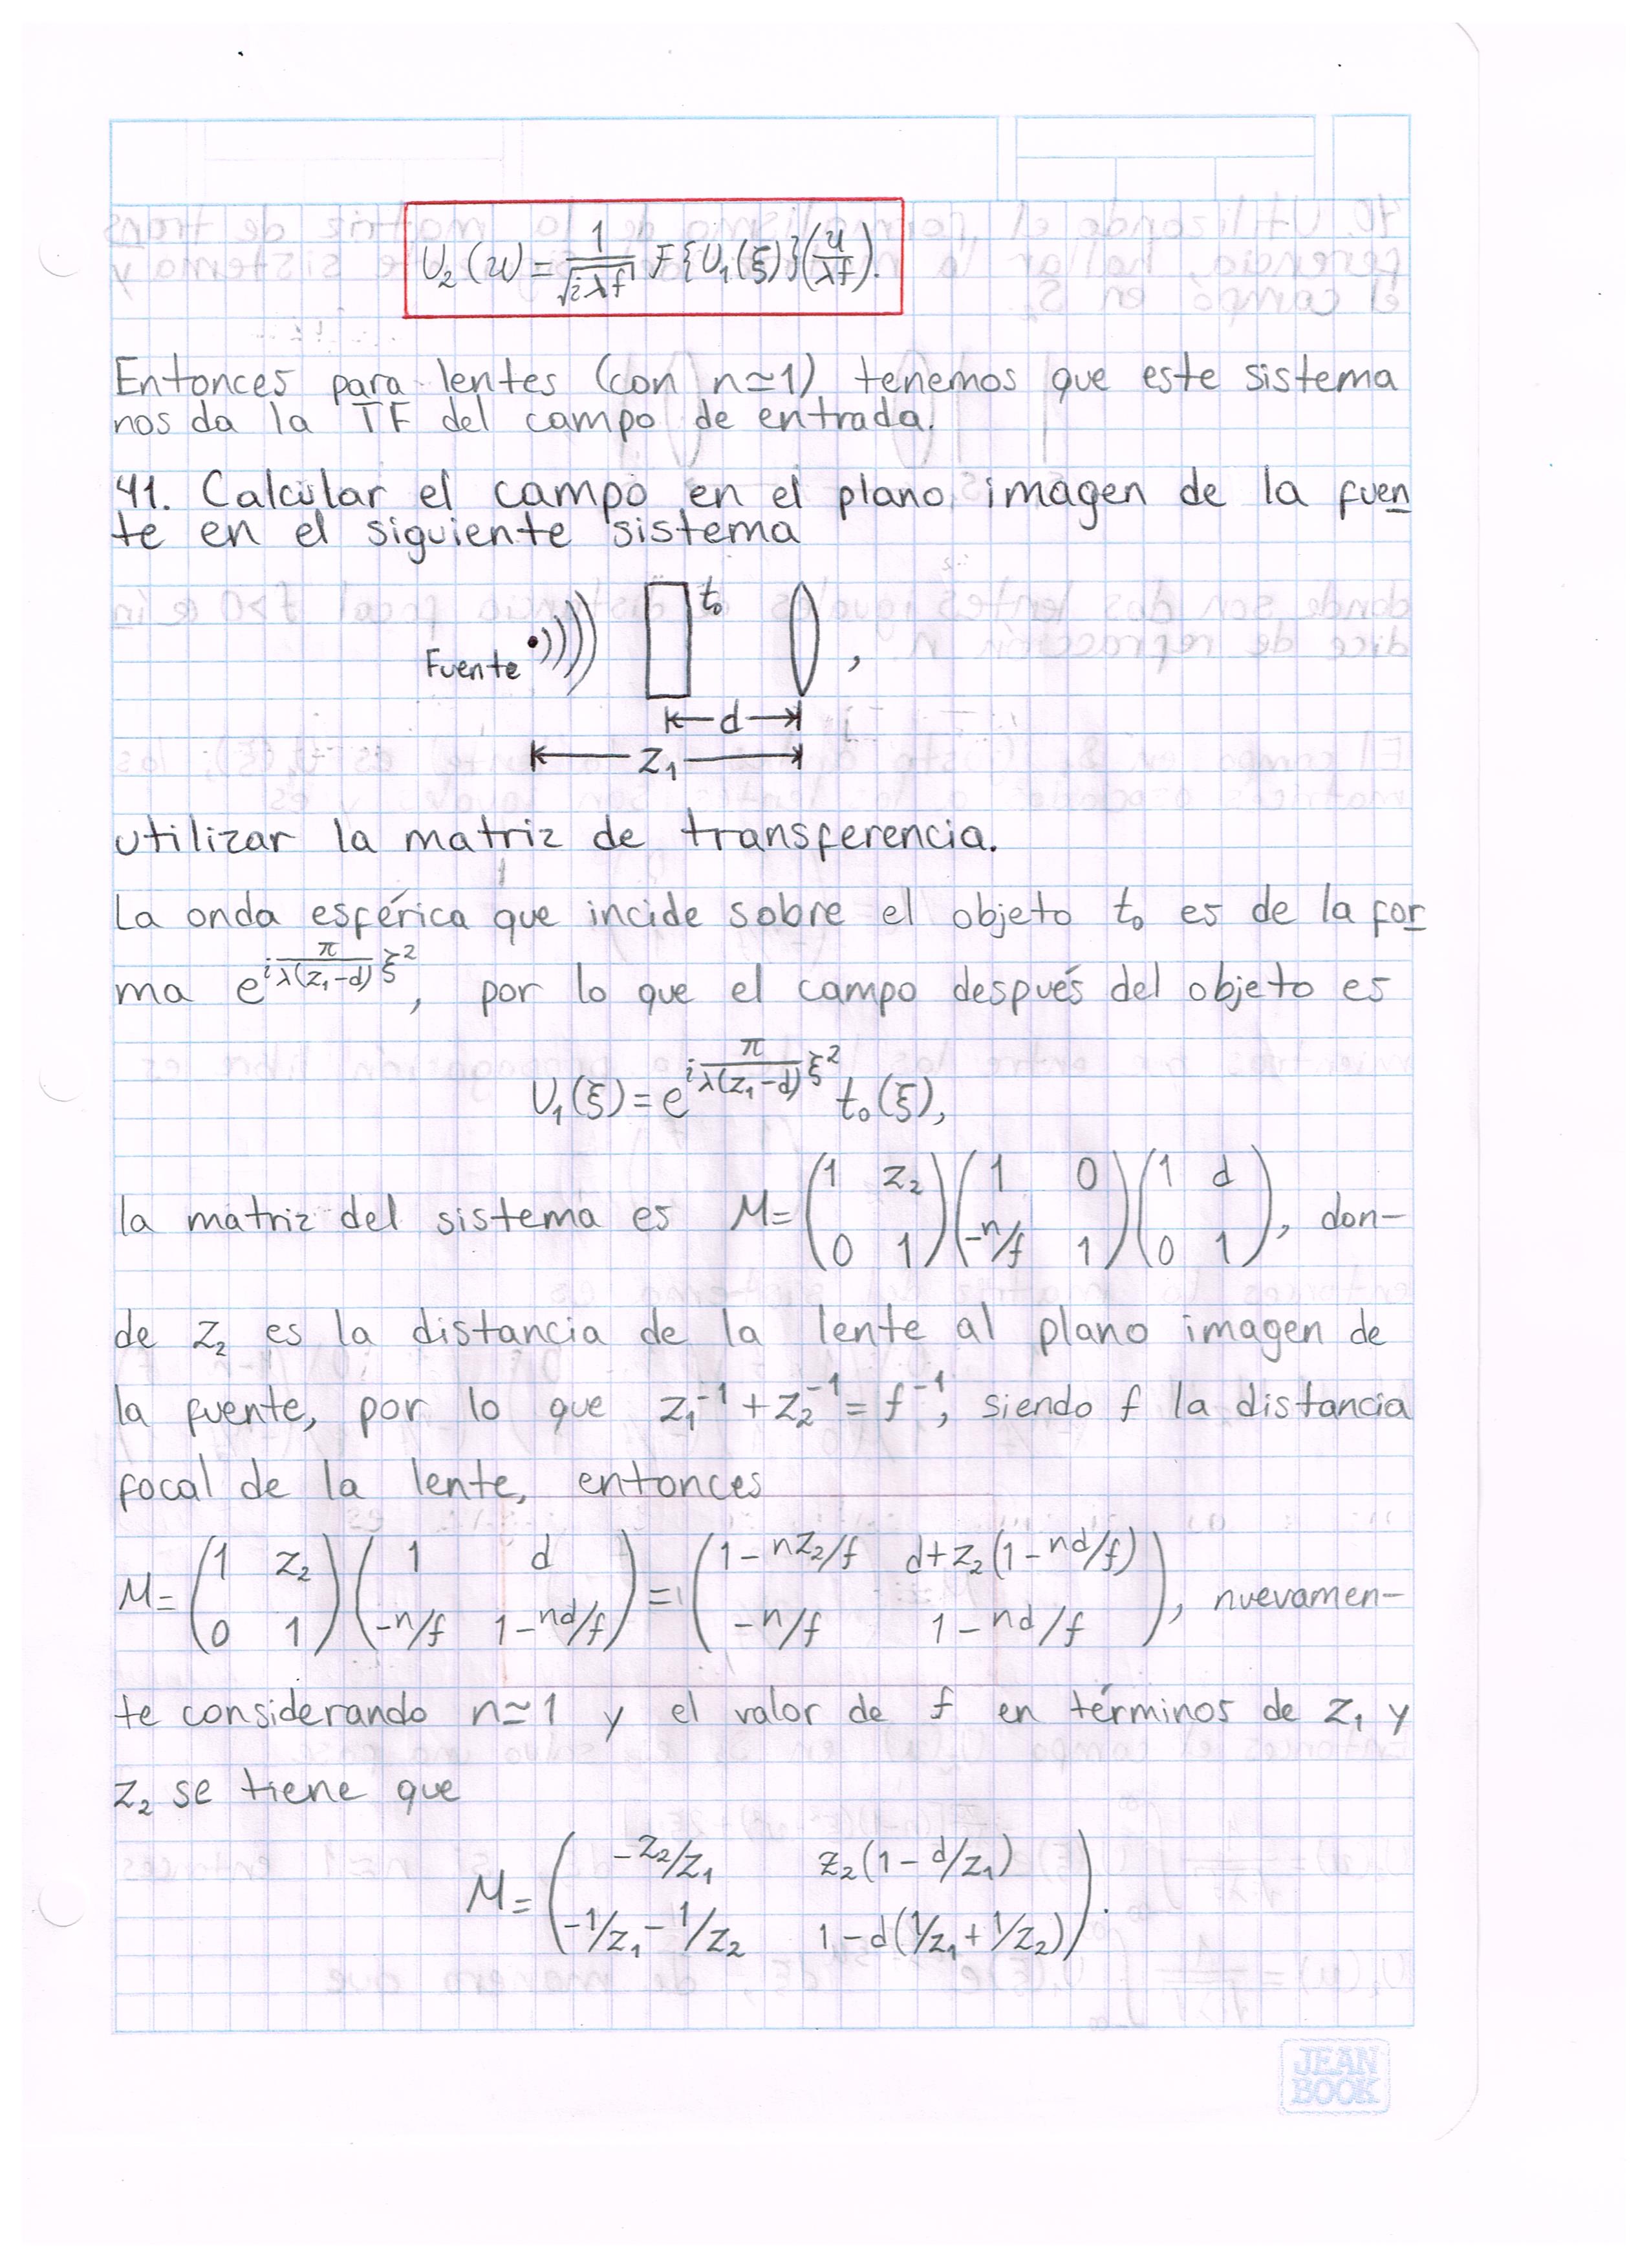 U₂(u) = 1/√(iλf) F{U₁(ξ)}(u/λf).
Entonces para lentes (con n≃1) tenemos que este sistema
nos da la TF del campo de entrada.
41. Calcular el campo en el plano imagen de la fuen
te en el siguiente sistema
t₀
Fuente
,
d
z₁
utilizar la matriz de transferencia.
La onda esférica que incide sobre el objeto t₀ es de la for
ma e^{i π/(λ(z₁-d)) ξ²}, por lo que el campo después del objeto es
U₁(ξ) = e^{i π/(λ(z₁-d)) ξ²} t₀(ξ),
la matriz del sistema es M = (1 z₂; 0 1)(1 0; -n/f 1)(1 d; 0 1), don-
de z₂ es la distancia de la lente al plano imagen de
la fuente, por lo que z₁⁻¹ + z₂⁻¹ = f⁻¹, siendo f la distancia
focal de la lente, entonces
M = (1 z₂; 0 1)(1 d; -n/f 1-nd/f) = (1-nz₂/f d+z₂(1-nd/f); -n/f 1-nd/f), nuevamen-
te considerando n≃1 y el valor de f en términos de z₁ y
z₂ se tiene que
M = (-z₂/z₁ z₂(1-d/z₁); -1/z₁-1/z₂ 1-d(1/z₁+1/z₂)).
JEAN
BOOK